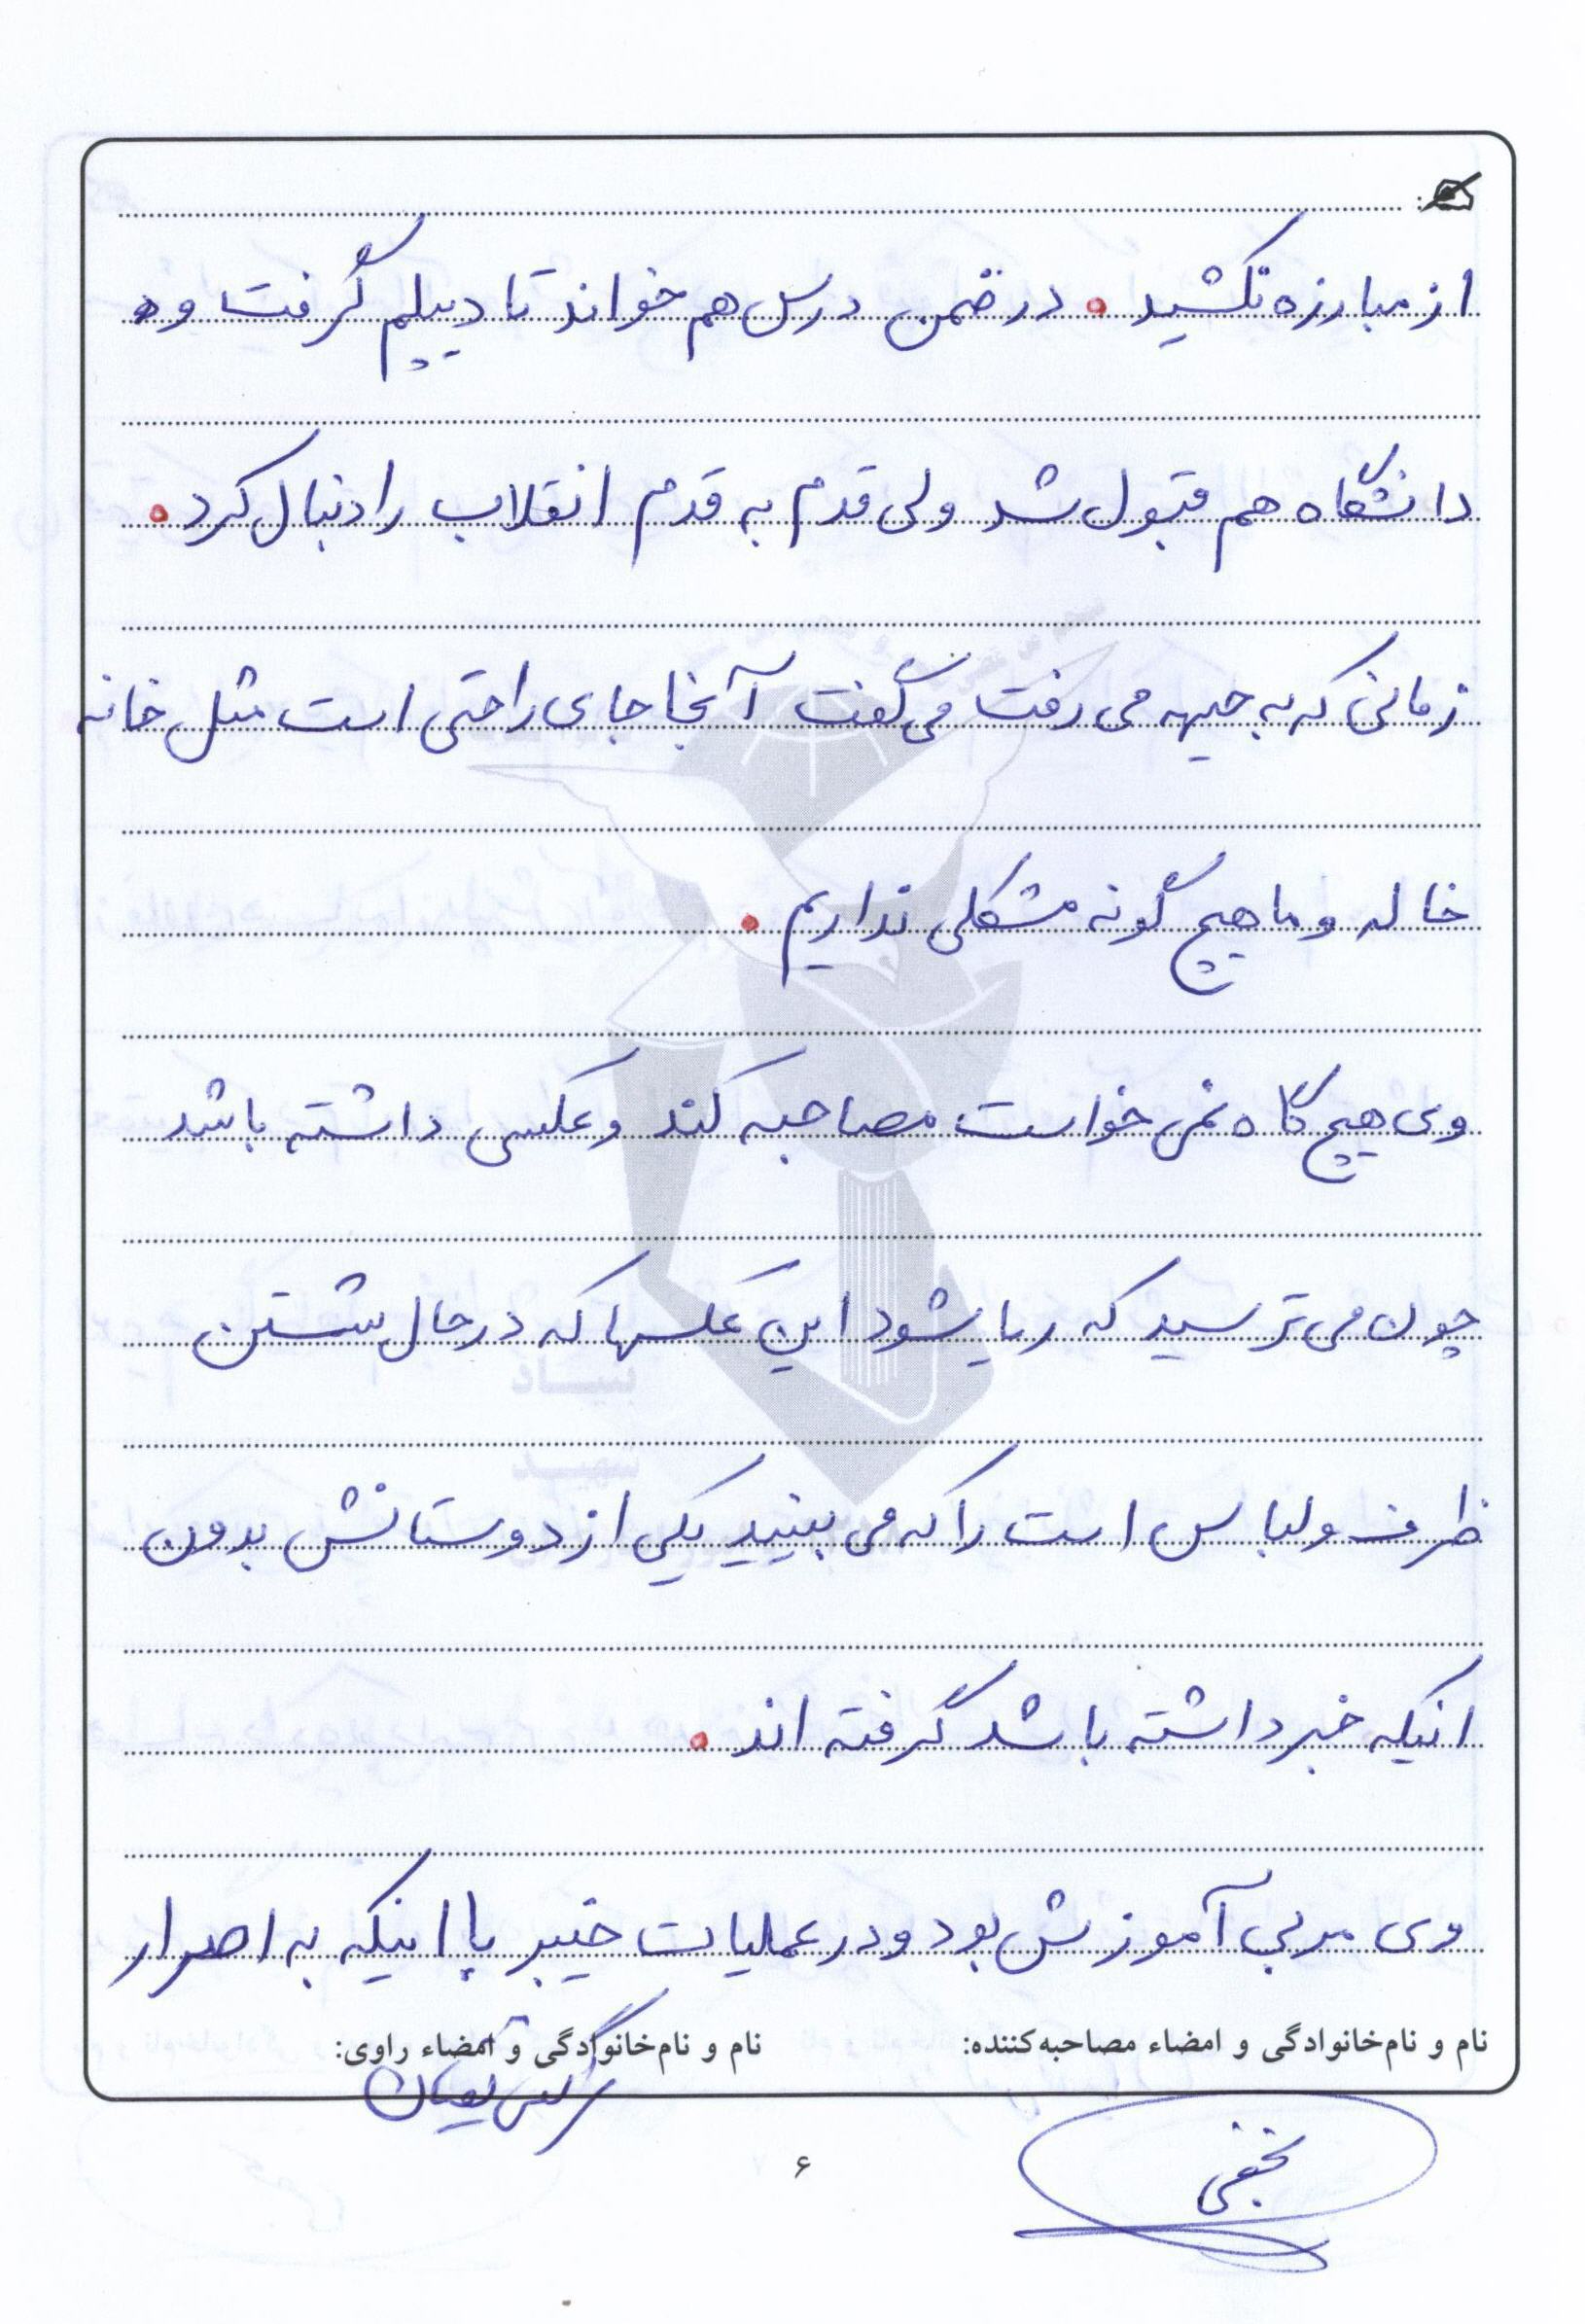 از مبارزه نکشید. در ضمن درس هم خواند تا دیپلم گرفت و
دانشگاه هم قبول شد ولی قدم به قدم انقلاب را دنبال کرد.
زمانی که به جبهه می رفت می گفت آنجا جای راحتی است مثل خانه
خاله و ما هیچ گونه مشکلی نداریم.
وی هیچ گاه نمی خواست مصاحبه کند و عکسی داشته باشد
چون می ترسید که ریا بشود این عکسها که در حال شستن
ظرف و لباس است را که می بینید یکی از دوستانش بدون
اینکه خبر داشته باشد گرفته اند.
وی مربی آموزش بود و در عملیات خیبر با اینکه به اصرار
نام و نام‌خانوادگی و امضاء مصاحبه‌کننده: نام و نام‌خانوادگی و امضاء راوی:
نجفی
۶
بنیاد
شهید